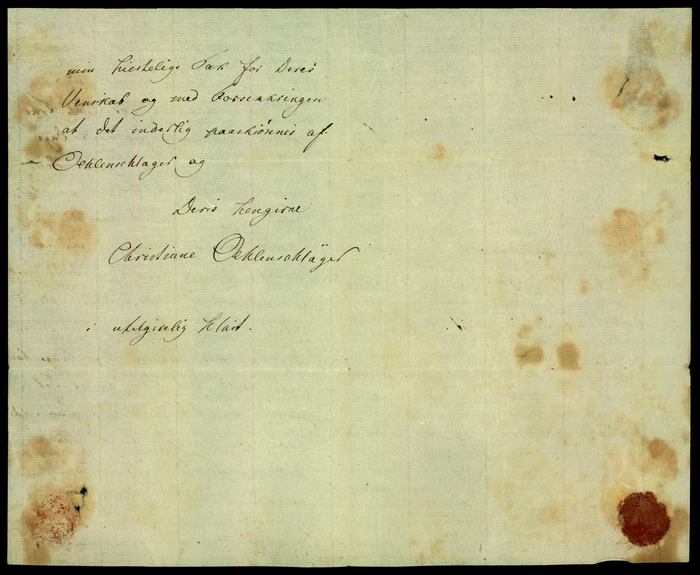 min hiertelige Tak for Deres
Venskab og med Forsikringen
at det inderlig paaskiønnes af
Oehlenschlager og
Deres hengivne
Christiane Oehlenschläger
i utilgivelig Hast.